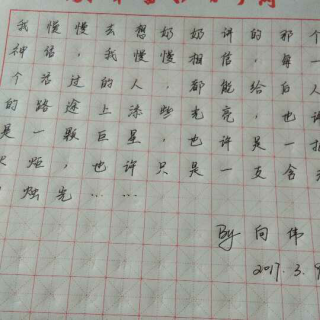 我慢慢去想奶奶讲的那个
神话，我慢慢相信，每一
个活过的人，都能给后人
的路途上添些光亮，也许
是一颗巨星，也许是一把
火炬，也许只是一支含
烛光……
By 向伟
2017.3.9